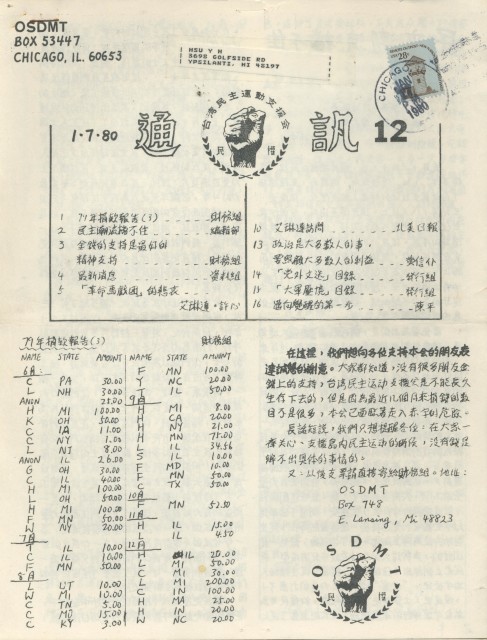 OSDMT
BOX 53447
CHICAGO, IL. 60653
HSU Y H
3698 GOLFSIDE RD
YPSILANTI, MI 48197
28c
CHICAGO
JAN
1980
1·7·80
通
台湾民主運動支援会
民
訊 12
1 79年捐款報告(3) 財務組
2
3 金錢的支持是最好的
精神支持 財務組
4 最新消息 資料組
5 「革命馬戲團」的悲哀
艾琳達·許心
10 艾琳達訪問 北美日報
13 政治是大多数人的事,
14 目録 發行組
15 「大軍壓境」目録 發行組
16 邁向覺醒的第一步
79年捐款報告(3) 財務組
NAME STATE AMOUNT
6月:
C PA 30.00
L NH 30.00
ANON 25.00
H MI 100.00
K OH 50.00
C IA 11.00
C NY 1.00
L NJ 8.00
ANON IL 26.00
G OH 30.00
C IL 40.00
H MI 100.00
L OH 50.00
H MI 100.00
F MN 50.00
W NY 20.00
7月
T IL 10.00
C IL 10.00
F MN 50.00
8月
L UT 10.00
W MI 10.00
C TN 5.00
C MO 15.00
C KY 3.00
NAME STATE AMOUNT
F MN 100.00
Y NC 20.00
T IL 50.00
9月
H MI 8.00
H CA 20.00
H NY 21.00
H MN 75.00
L IL 34.56
S IL 10.00
F MD 10.00
F MN 50.00
C TX 50.00
10月
F MN 52.50
11月
H IL 15.00
L IL 4.50
12月
H IL 20.00
L SC 50.00
C MI 30.00
L MI 200.00
C IN 100.00
H MA 25.00
H IN 20.00
W NC 20.00
在這裡,我們想向各位支持本会的朋友表
達誠懇的謝意。大家都知道,没有很多朋友金
錢上的支持,台湾民主运动支援会是不能長久
生存下去的,但是因為最近几個月來捐錢的数
目不是很多,本会已面臨著入赤字的危險。
長話短說,我們只想提醒各位:在大家一
齊关心、支援島内民主运动的時候,没有錢是
辦不出具体的事情的。
又:以後支票請直接寄給財務組。地址:
OSDMT
Box 748
E. Lansing, Mi 48823
OSDMT
民